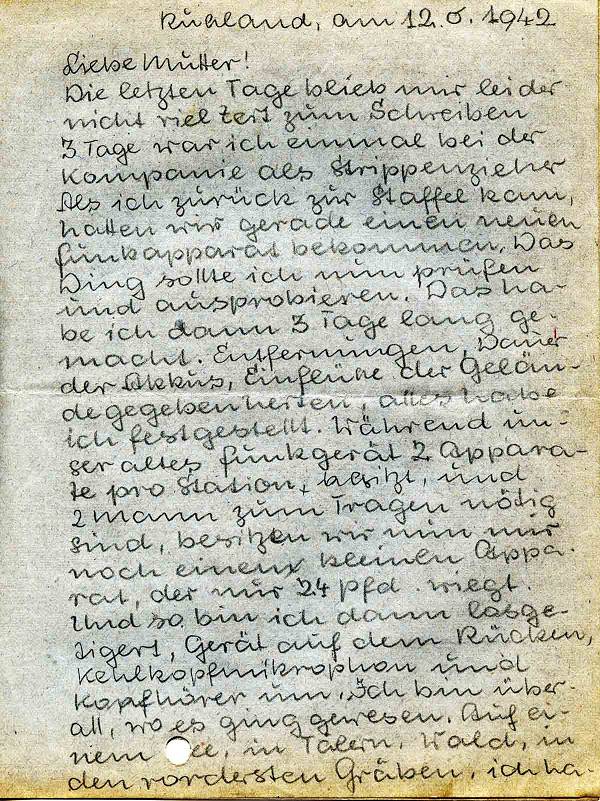 Rußland, am 12.6.1942
Liebe Mutter!
Die letzten Tage blieb mir leider
nicht viel Zeit zum Schreiben
3 Tage war ich einmal bei der
Kompanie als Strippenzieher
Als ich zurück zur Staffel kam,
hatten wir gerade einen neuen
Funkapparat bekommen. Das
Ding sollte ich nun prüfen
und ausprobieren. Das ha-
be ich dann 3 Tage lang ge-
macht. Entfernungen, Dauer
der Akkus, Einflüße der Gelän-
degegebenheiten, alles habe
ich festgestellt. Während un-
ser altes Funkgerät 2 Appara-
te pro Station, besitzt, und
2 Mann zum Tragen nötig
sind, besitzen wir nun nur
noch einen kleinen Appa-
rat, der nur 24 Pfd. wiegt.
Und so bin ich dann losge-
tigert, Gerät auf dem Rücken,
Kehlkopfmikrophon und
Kopfhörer um. Ich bin über-
all, wo es ging gewesen. Auf ei-
nem in Tälern, Wald, in
den vordersten Gräben, ich ha-